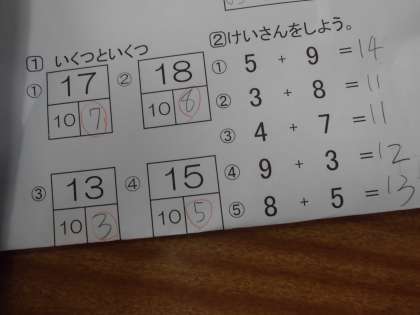 1 いくつといくつ
① 17
10 7
② 18
10 8
③ 13
10 3
④ 15
10 5
2 けいさんをしよう。
① 5 + 9 = 14
② 3 + 8 = 11
③ 4 + 7 = 11
④ 9 + 3 = 12
⑤ 8 + 5 = 13